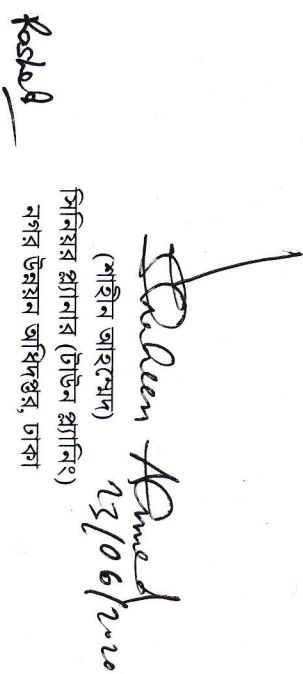 Shaheen Ahmed
23/06/2020
(শাহীন আহম্মেদ)
সিনিয়র প্ল্যানার (টাউন প্ল্যানিং)
নগর উন্নয়ন অধিদপ্তর, ঢাকা
Rashed